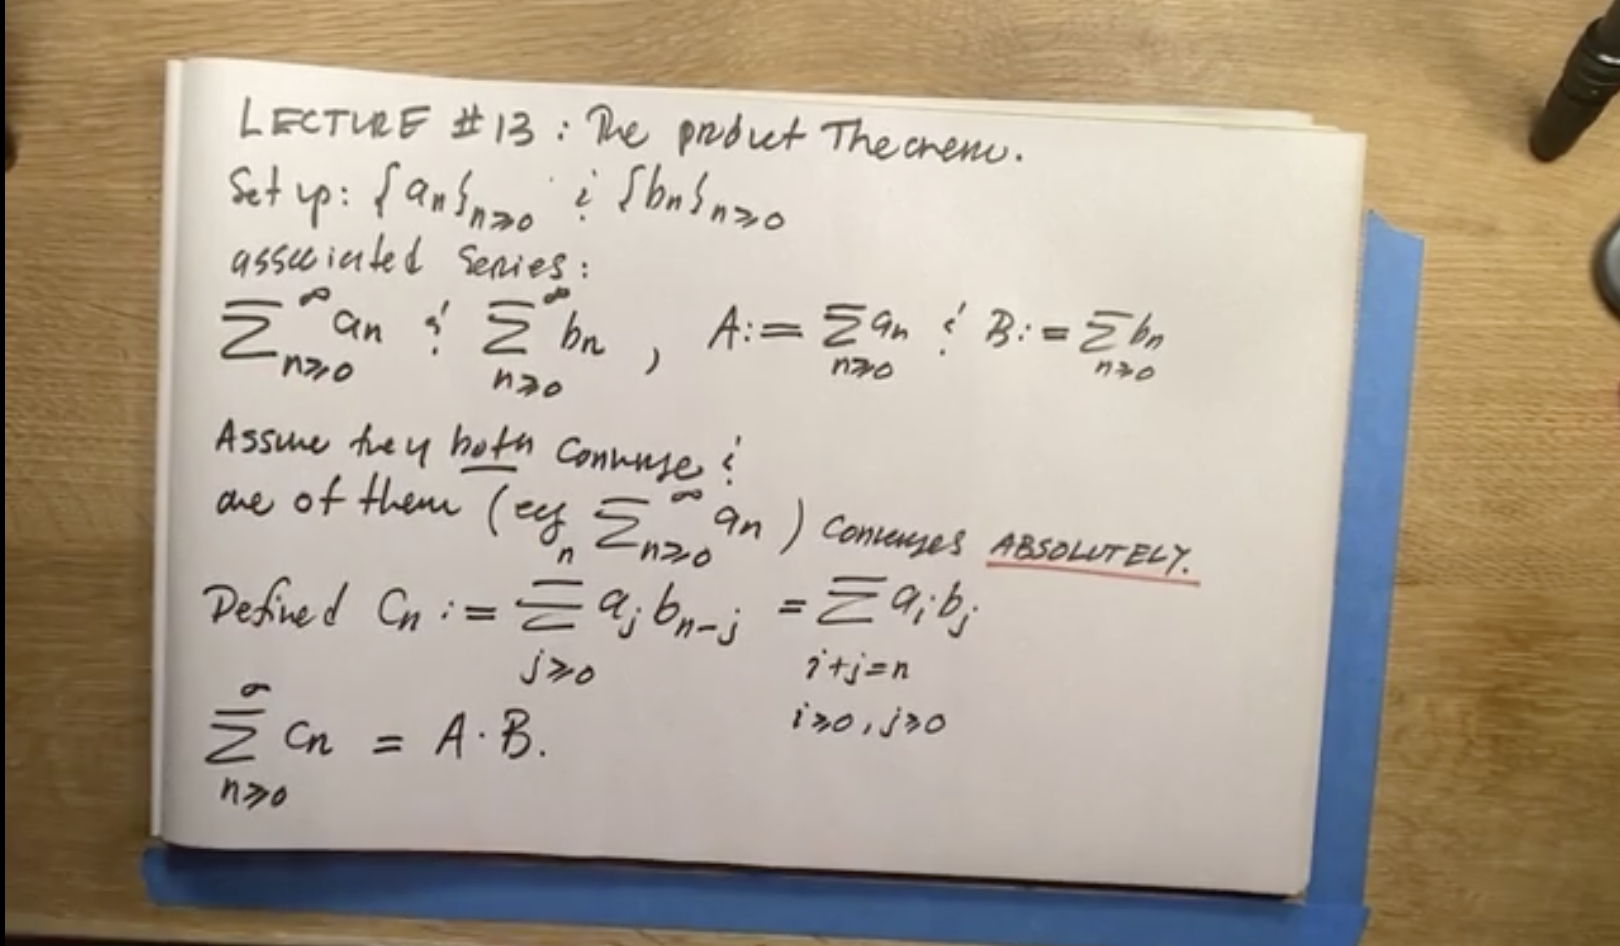 LECTURE #13: The product Theorem.
Set up: {an}n≥0 & {bn}n≥0
associated Series:
∑∞n≥0 an & ∑∞n≥0 bn , A:= ∑n≥0 an & B:= ∑n≥0 bn
Assume they both converge &
one of them (eg ∑∞n≥0 an) converges ABSOLUTELY.
Defined Cn := ∑nj≥0 aj bn-j = ∑ ai bj
i+j=n
i≥0, j≥0
∑∞n≥0 cn = A·B.